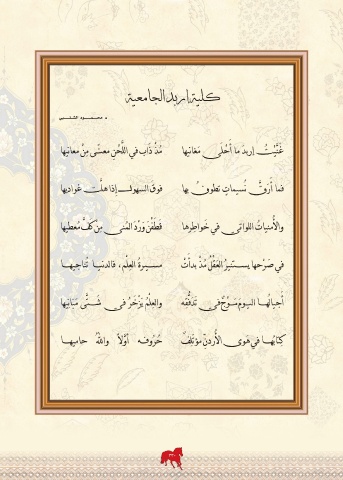 كلية إربد الجامعية
د. محمود الشلبي
غَنَّيْتُ إربدَ ما أَحْلَى مَغانيها مُذْ ذَاب في اللَّحْنِ معنًى مِنْ معانيها
فما أَرَقَّ نُسيماتٍ تطوفُ بها فوق السهولِ إذا هلَّتْ غَواديها
والأُمنياتُ اللواتي في خَواطِرها قَطَفْنَ وَرْدَ المُنى مِنْ كفِّ مُعطيها
في صَرْحها يستنيرُ العَقْلُ مُذْ بدأتْ مسيرةُ العِلْمِ، فالدنيا تُناجيها
أَجيالُها اليومَ مَوْجٌ في تَدفُّقِه والعِلْمُ يَزْخَرُ في شتَّى مَبَانيها
كِتابُها في هَوى الأُردنِّ مؤتَلِفٌ حُروفُه أوَّلاً واللهُ حاميها